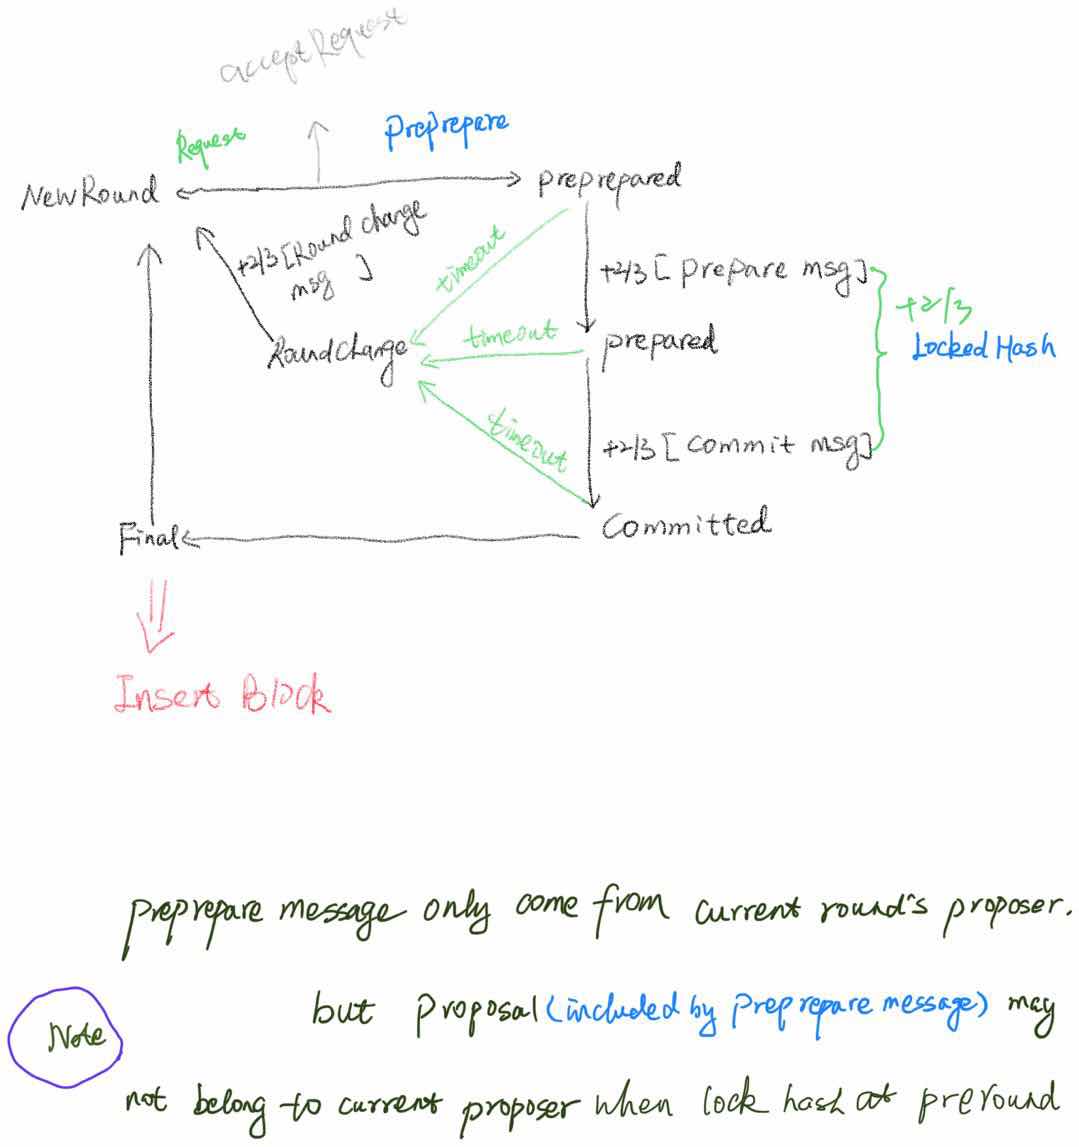 acceptRequest
Request
Preprepare
NewRound
preprepared
+2/3 [Round change
msg ]
timeout
+2/3 [ prepare msg]
+2/3
Locked Hash
RoundChange
timeout
prepared
timeout
+2/3 [ commit msg]
Final
Committed
Insert Block
preprepare message only come from current round's proposer.
but proposal (included by preprepare message) may
Note
not belong to current proposer when lock hash at preround